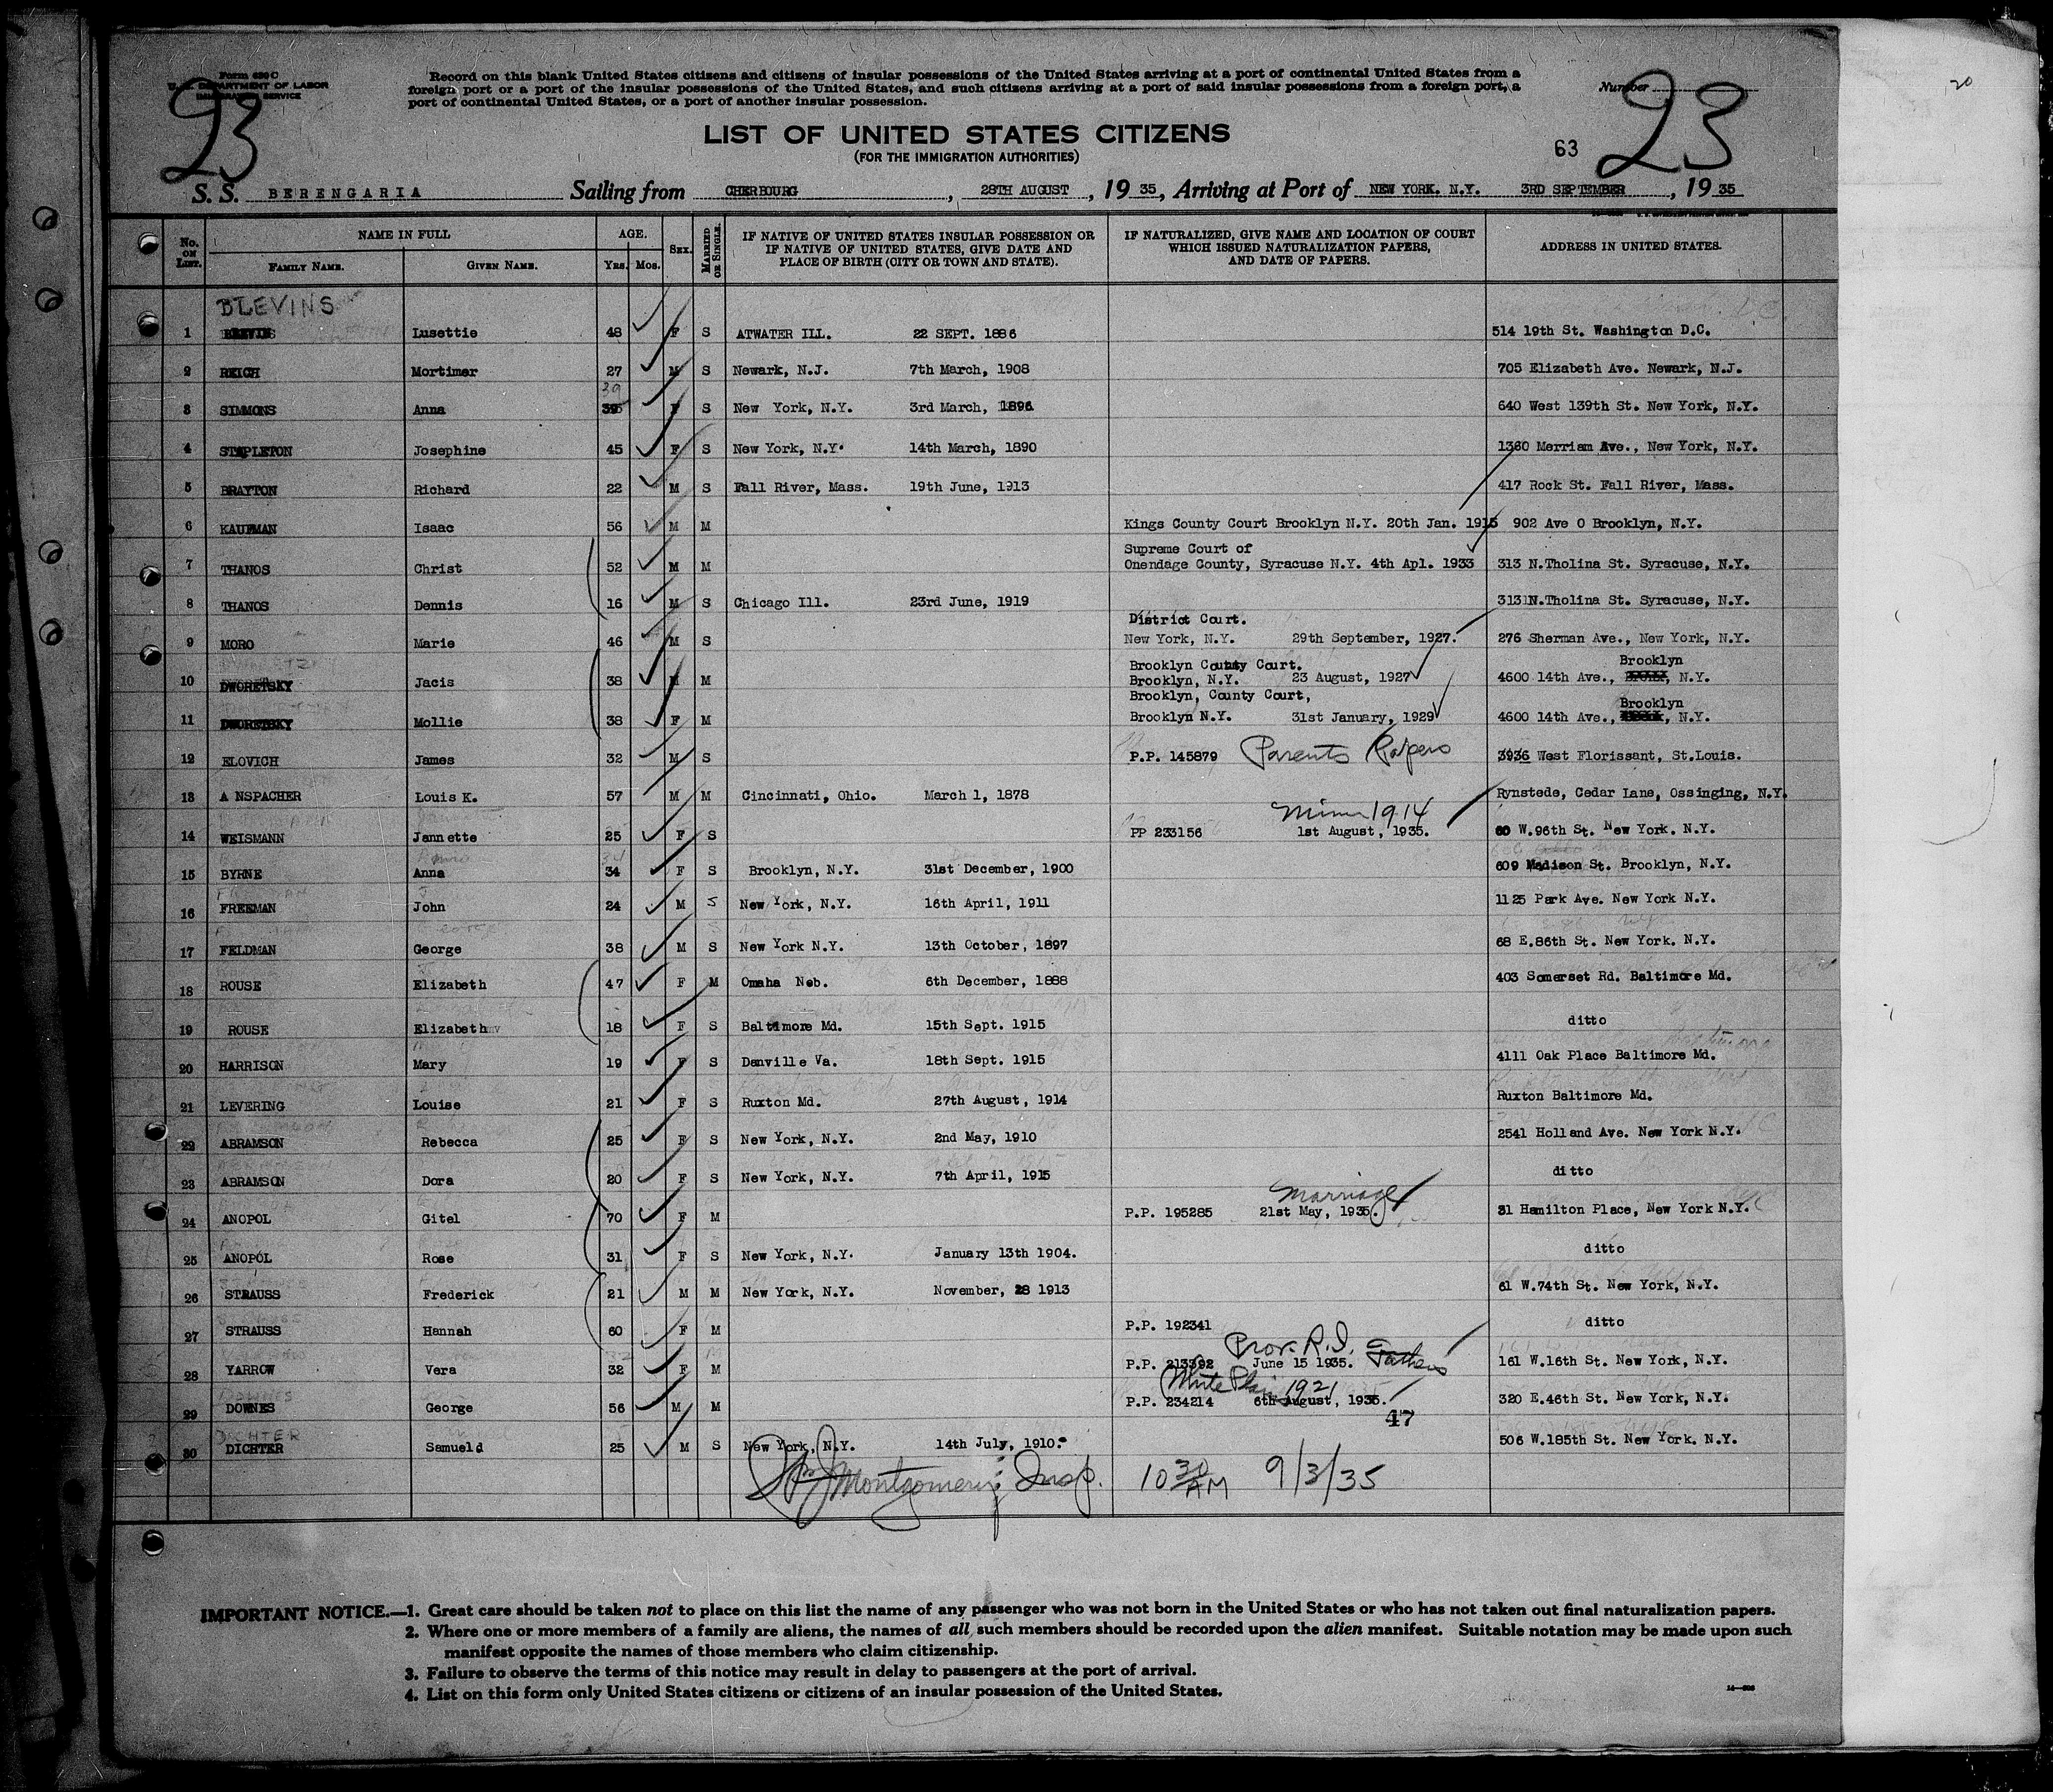 Form 630 C
U. S. DEPARTMENT OF LABOR
IMMIGRATION SERVICE
23
Record on this blank United States citizens and citizens of insular possessions of the United States arriving at a port of continental United States from a
foreign port or a port of the insular possessions of the United States, and such citizens arriving at a port of said insular possessions from a foreign port, a
port of continental United States, or a port of another insular possession.
Number
23
20
LIST OF UNITED STATES CITIZENS
(FOR THE IMMIGRATION AUTHORITIES)
63
S. S. BERENGARIA Sailing from CHERBOURG, 28TH AUGUST, 19 35, Arriving at Port of NEW YORK. N.Y. 3RD SEPTEMBER, 19 35
No. ON LIST. NAME IN FULL FAMILY NAME. GIVEN NAME. AGE. YRS. MOS. SEX. MARRIED OR SINGLE. IF NATIVE OF UNITED STATES INSULAR POSSESSION OR IF NATIVE OF UNITED STATES, GIVE DATE AND PLACE OF BIRTH (CITY OR TOWN AND STATE). IF NATURALIZED, GIVE NAME AND LOCATION OF COURT WHICH ISSUED NATURALIZATION PAPERS, AND DATE OF PAPERS. ADDRESS IN UNITED STATES.
BLEVINS
1 Lusettie 48 F S ATWATER ILL. 22 SEPT. 1886 514 19th St. Washington D.C.
2 REICH Mortimer 27 M S Newark, N.J. 7th March, 1908 705 Elizabeth Ave. Newark, N.J.
39
3 SIMMONS Anna 39 F S New York, N.Y. 3rd March, 1896 640 West 139th St. New York, N.Y.
4 STAPLETON Josephine 45 F S New York, N.Y. 14th March, 1890 1360 Merriam Ave., New York, N.Y.
5 BRAYTON Richard 22 M S Fall River, Mass. 19th June, 1913 417 Rock St. Fall River, Mass.
6 KAUFMAN Isaac 56 M M Kings County Court Brooklyn N.Y. 20th Jan. 1915 902 Ave O Brooklyn, N.Y.
Supreme Court of
7 THANOS Christ 52 M M Onendage County, Syracuse N.Y. 4th Apl. 1933 313 N.Tholina St. Syracuse, N.Y.
8 THANOS Dennis 16 M S Chicago Ill. 23rd June, 1919 313 N.Tholina St. Syracuse, N.Y.
District Court.
9 MORO Marie 46 M S New York, N.Y. 29th September, 1927. 276 Sherman Ave., New York, N.Y.
Brooklyn County Court. Brooklyn
10 DWORETSKY Jacis 38 M M Brooklyn, N.Y. 23 August, 1927 4600 14th Ave., N.Y.
Brooklyn, County Court, Brooklyn
11 DWORETSKY Mollie 38 F M Brooklyn N.Y. 31st January, 1929 4600 14th Ave., N.Y.
12 ELOVICH James 32 M S P.P. 145879 Parents Papers 3936 West Florissant, St.Louis.
13 A NSPACHER Louis K. 57 M M Cincinnati, Ohio. March 1, 1878 Rynstede, Cedar Lane, Ossinging, N.Y.
1914
14 WEISMANN Jannette 25 F S PP 233156 1st August, 1935. 60 W.96th St. New York. N.Y.
15 BYRNE Anna 34 F S Brooklyn, N.Y. 31st December, 1900 609 Madison St. Brooklyn, N.Y.
16 FREEMAN John 24 M S New York, N.Y. 16th April, 1911 1125 Park Ave. New York N.Y.
17 FELDMAN George 38 M S New York N.Y. 13th October, 1897 68 E.86th St. New York. N.Y.
18 ROUSE Elizabeth 47 F M Omaha Neb. 6th December, 1888 403 Somerset Rd. Baltimore Md.
19 ROUSE Elizabeth 18 F S Baltimore Md. 15th Sept. 1915 ditto
20 HARRISON Mary 19 F S Danville Va. 18th Sept. 1915 4111 Oak Place Baltimore Md.
21 LEVERING Louise 21 F S Ruxton Md. 27th August, 1914 Ruxton Baltimore Md.
22 ABRAMSON Rebecca 25 F S New York, N.Y. 2nd May, 1910 2541 Holland Ave. New York N.Y.
23 ABRAMSON Dora 20 F S New York, N.Y. 7th April, 1915 ditto
Marriage
24 ANOPOL Gitel 70 F M P.P. 195285 21st May, 1935. 31 Hamilton Place, New York N.Y.
25 ANOPOL Rose 31 F S New York, N.Y. January 13th 1904. ditto
26 STRAUSS Frederick 21 M M New York, N.Y. November, 28 1913 61 W.74th St. New York, N.Y.
27 STRAUSS Hannah 60 F M P.P. 192341 ditto
Prov. R.I.
28 YARROW Vera 32 F M P.P. 213392 June 15 1935. Fathers 161 W.16th St. New York, N.Y.
White Plains 1921
29 DOWNES George 56 M M P.P. 234214 6th August, 1935. 320 E.46th St. New York, N.Y.
47
DICHTER
30 DICHTER Samueld 25 M S New York, N.Y. 14th July, 1910. 506 W.185th St. New York. N.Y.
Montgomery Insp. 10 30 AM 9/3/35
IMPORTANT NOTICE.—1. Great care should be taken not to place on this list the name of any passenger who was not born in the United States or who has not taken out final naturalization papers.
2. Where one or more members of a family are aliens, the names of all such members should be recorded upon the alien manifest. Suitable notation may be made upon such
manifest opposite the names of those members who claim citizenship.
3. Failure to observe the terms of this notice may result in delay to passengers at the port of arrival.
4. List on this form only United States citizens or citizens of an insular possession of the United States.